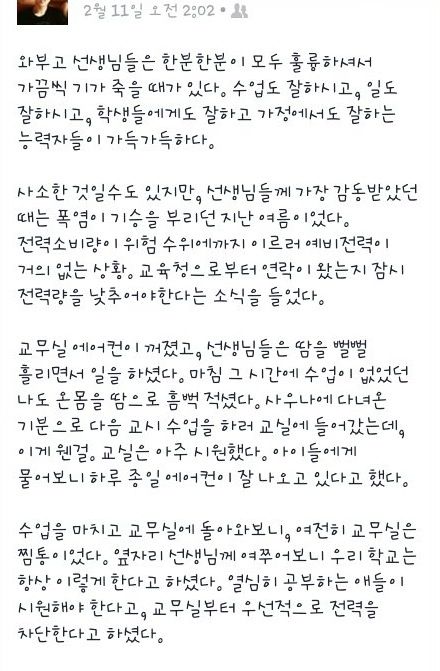 2월 11일 오전 2:02 •
와부고 선생님들은 한분한분이 모두 훌륭하셔서
가끔씩 기가 죽을 때가 있다. 수업도 잘하시고, 일도
잘하시고, 학생들에게도 잘하고 가정에서도 잘하는
능력자들이 가득가득하다.
사소한 것일수도 있지만, 선생님들께 가장 감동받았던
때는 폭염이 기승을 부리던 지난 여름이었다.
전력소비량이 위험 수위에까지 이르러 예비전력이
거의 없는 상황. 교육청으로부터 연락이 왔는지 잠시
전력량을 낮추어야한다는 소식을 들었다.
교무실 에어컨이 꺼졌고, 선생님들은 땀을 뻘뻘
흘리면서 일을 하셨다. 마침 그 시간에 수업이 없었던
나도 온몸을 땀으로 흠뻑 적셨다. 사우나에 다녀온
기분으로 다음 교시 수업을 하러 교실에 들어갔는데,
이게 웬걸. 교실은 아주 시원했다. 아이들에게
물어보니 하루 종일 에어컨이 잘 나오고 있다고 했다.
수업을 마치고 교무실에 돌아와보니, 여전히 교무실은
찜통이었다. 옆자리 선생님께 여쭈어보니 우리 학교는
항상 이렇게 한다고 하셨다. 열심히 공부하는 애들이
시원해야 한다고, 교무실부터 우선적으로 전력을
차단한다고 하셨다.